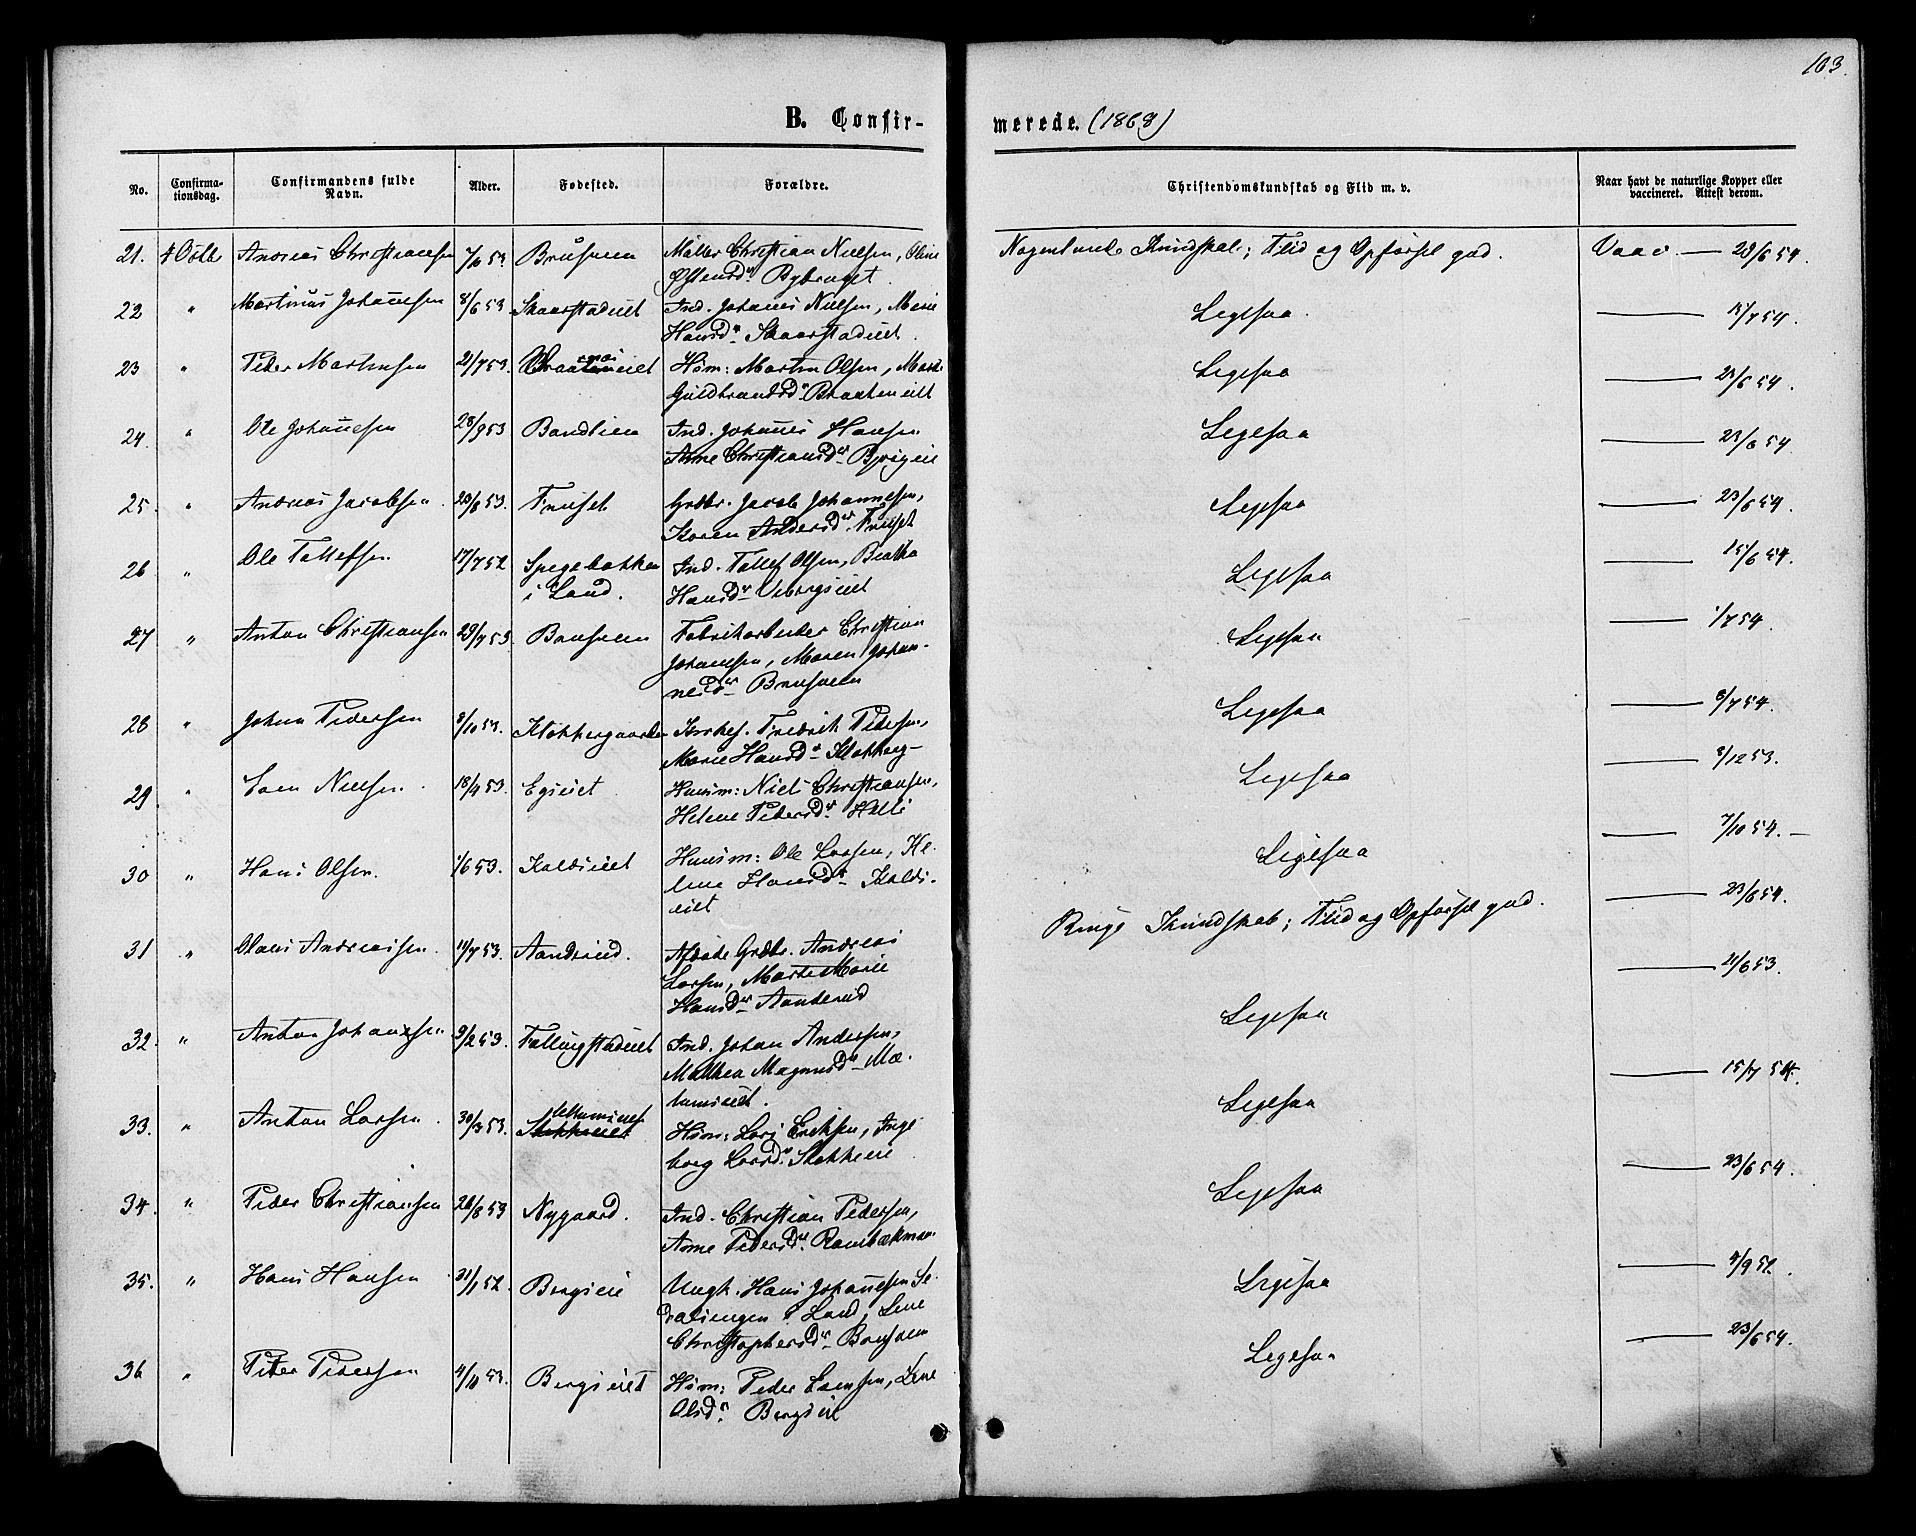 103.
B. Confir-
merede. (1868)
No.
Confirma-
tionsdag.
Confirmandens fulde
Navn.
Alder.
Fødested.
Forældre.
Christendomskundskab og Flid m. v.
Naar havt de naturlige Kopper eller
vaccineret. Attest derom.
21. 4 Octbr Andreas Christiansen 7/10 53 Brusveen Møller Christian Nielsen, Oline
Bybruget.
Nogenlunde Kundskab; Flid og Opførsel god. Vacc. — 23/6 54.
22 " Martinus Johannesen 8/6 53 Skaarstadeiet Ind. Johanes Nielsen, Marie
Hansdr Skaarstadeiet.
Ligesaa. — /7 54.
23 " Peder Martinsen 21/7 53. Høm: Martin Olsen, Marte
Guldbrandsdr Braateneiet
Ligesaa — 23/6 54.
24. " Ole Johannesen 28/9 53 Bandlien Ind. Johannes Hansen
Anne Christiansdr
Ligesaa — 23/6 54
25. " Andreas Jacobsen. 20/8 53. Fruset Grdbr. Jacob Johannesen,
Karen Andersdr Fruset
Ligesaa — 23/6 54.
26 " Ole Tollefsen 17/7 52 Spegebakken Ind. Tollef Olsen, Beathe
i Land. Hansdr
Ligesaa — 15/6 54.
27 " Anton Christiansen 29/7 53. Brusveen Fabrikarbeider Christian
Johannesen, Maren Johan-
nesdr Brusveen
Ligesaa — 1/7 54.
28 " Johan Pedersen 8/10 53. Klokkergaarden Fredrik Pedersen,
Marie Hansdr Klokkerg-
Ligesaa — 8/7 54.
29 " Lars Nielsen. 18/4 53. Egseiet. Huusm: Niels Christiansen,
Helene Pedersdr
Ligesaa — 8/12 53.
30 " Hans Olsen. 1/6 53. Kaldseiet Huusm: Ole Larsen, He-
lene Hansdr Kalds-
eiet
Ligesaa — 7/10 54. —
31 " Olaus Andreassen. 11/7 53. Aandsrud. Afdøde Grdbr. Andreas
Larsen, Marthe Marie
Hansdr Aandsrud
Ringe Kundskab; Flid og Opførsel god. — 23/6 54.
32. " Anton Johannesen 9/2 53. Fallingstadeiet Ind. Johan Andersen,
Mathea Magnusdr Mæ-
Ligesaa — 21/6 53.
33. " Anton Larsen. 30/3 53. Høm: Lars Eriksen, Inge
borg Larsdr Stokkeeie
Ligesaa — 15/7 54.
34. " Peder Christiansen 28/8 53 Nygaard. Ind. Christian Pedersen,
Anne Pedersdr
Ligesaa — 23/6 54.
35. " Hans Hansen 31/1 52. Bergseie Ungk. Hans Johannesen Se-
dalsengen i Land, Lene
Christophersdr Brusveen
Ligesaa — 4/9 52.
36 " Peter Pedersen 4/10 53. Bergseiet Høm: Peder Larsen, Lene
Olsdr Bergseie
Ligesaa — 23/6 54.